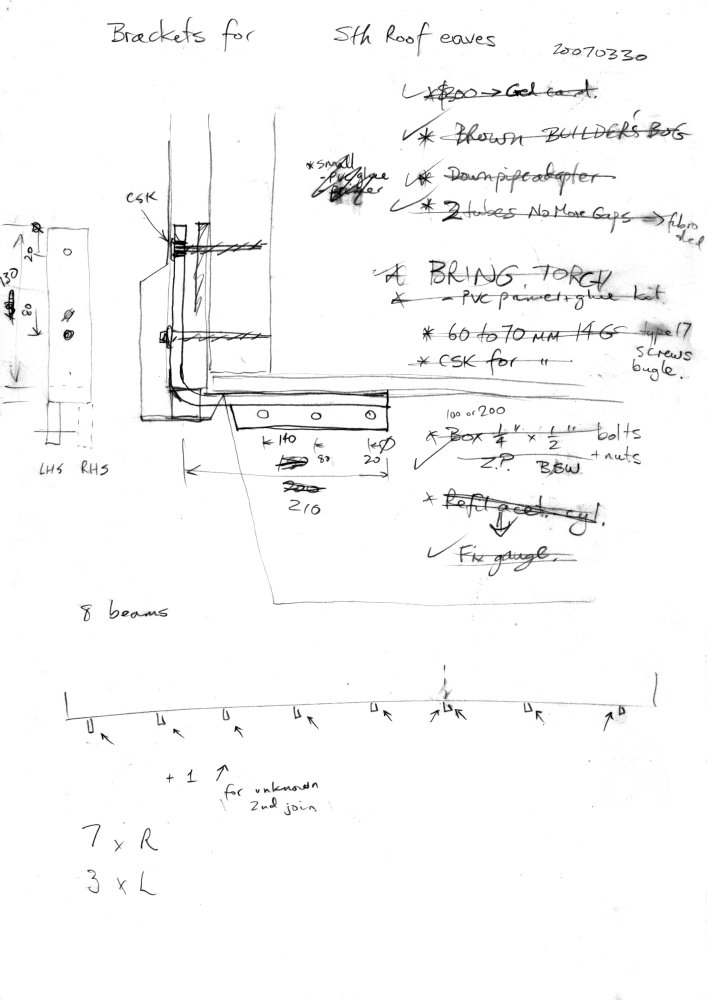 Brackets for Sth Roof eaves
20070330
* $300 → Gel card.
* Brown BUILDER'S BOG
* small
- PVC glue
* Downpipe adapter
* 2 tubes No More Gaps → fibro
CSK
* BRING TORCH
* - PVC primer + glue kit
* 60 to 70 MM 14G type 17
screws
bugle.
* CSK for "
20
130
80
100 or 200
* Box 1/4" x 1/2" bolts
+ nuts
Z.P. BSW
140
80
20
150
200
210
LHS RHS
* Refil acet. cyl.
Fix gauge.
8 beams
+ 1
for unknown
2nd join
7 x R
3 x L